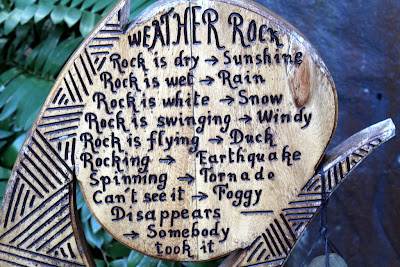 WEATHER ROCK
Rock is dry → Sunshine
Rock is wet → Rain
Rock is white → Snow
Rock is swinging → Windy
Rock is flying → Duck
Rocking → Earthquake
Spinning → Tornado
Can't see it → Foggy
Disappears —
→ Somebody
took it